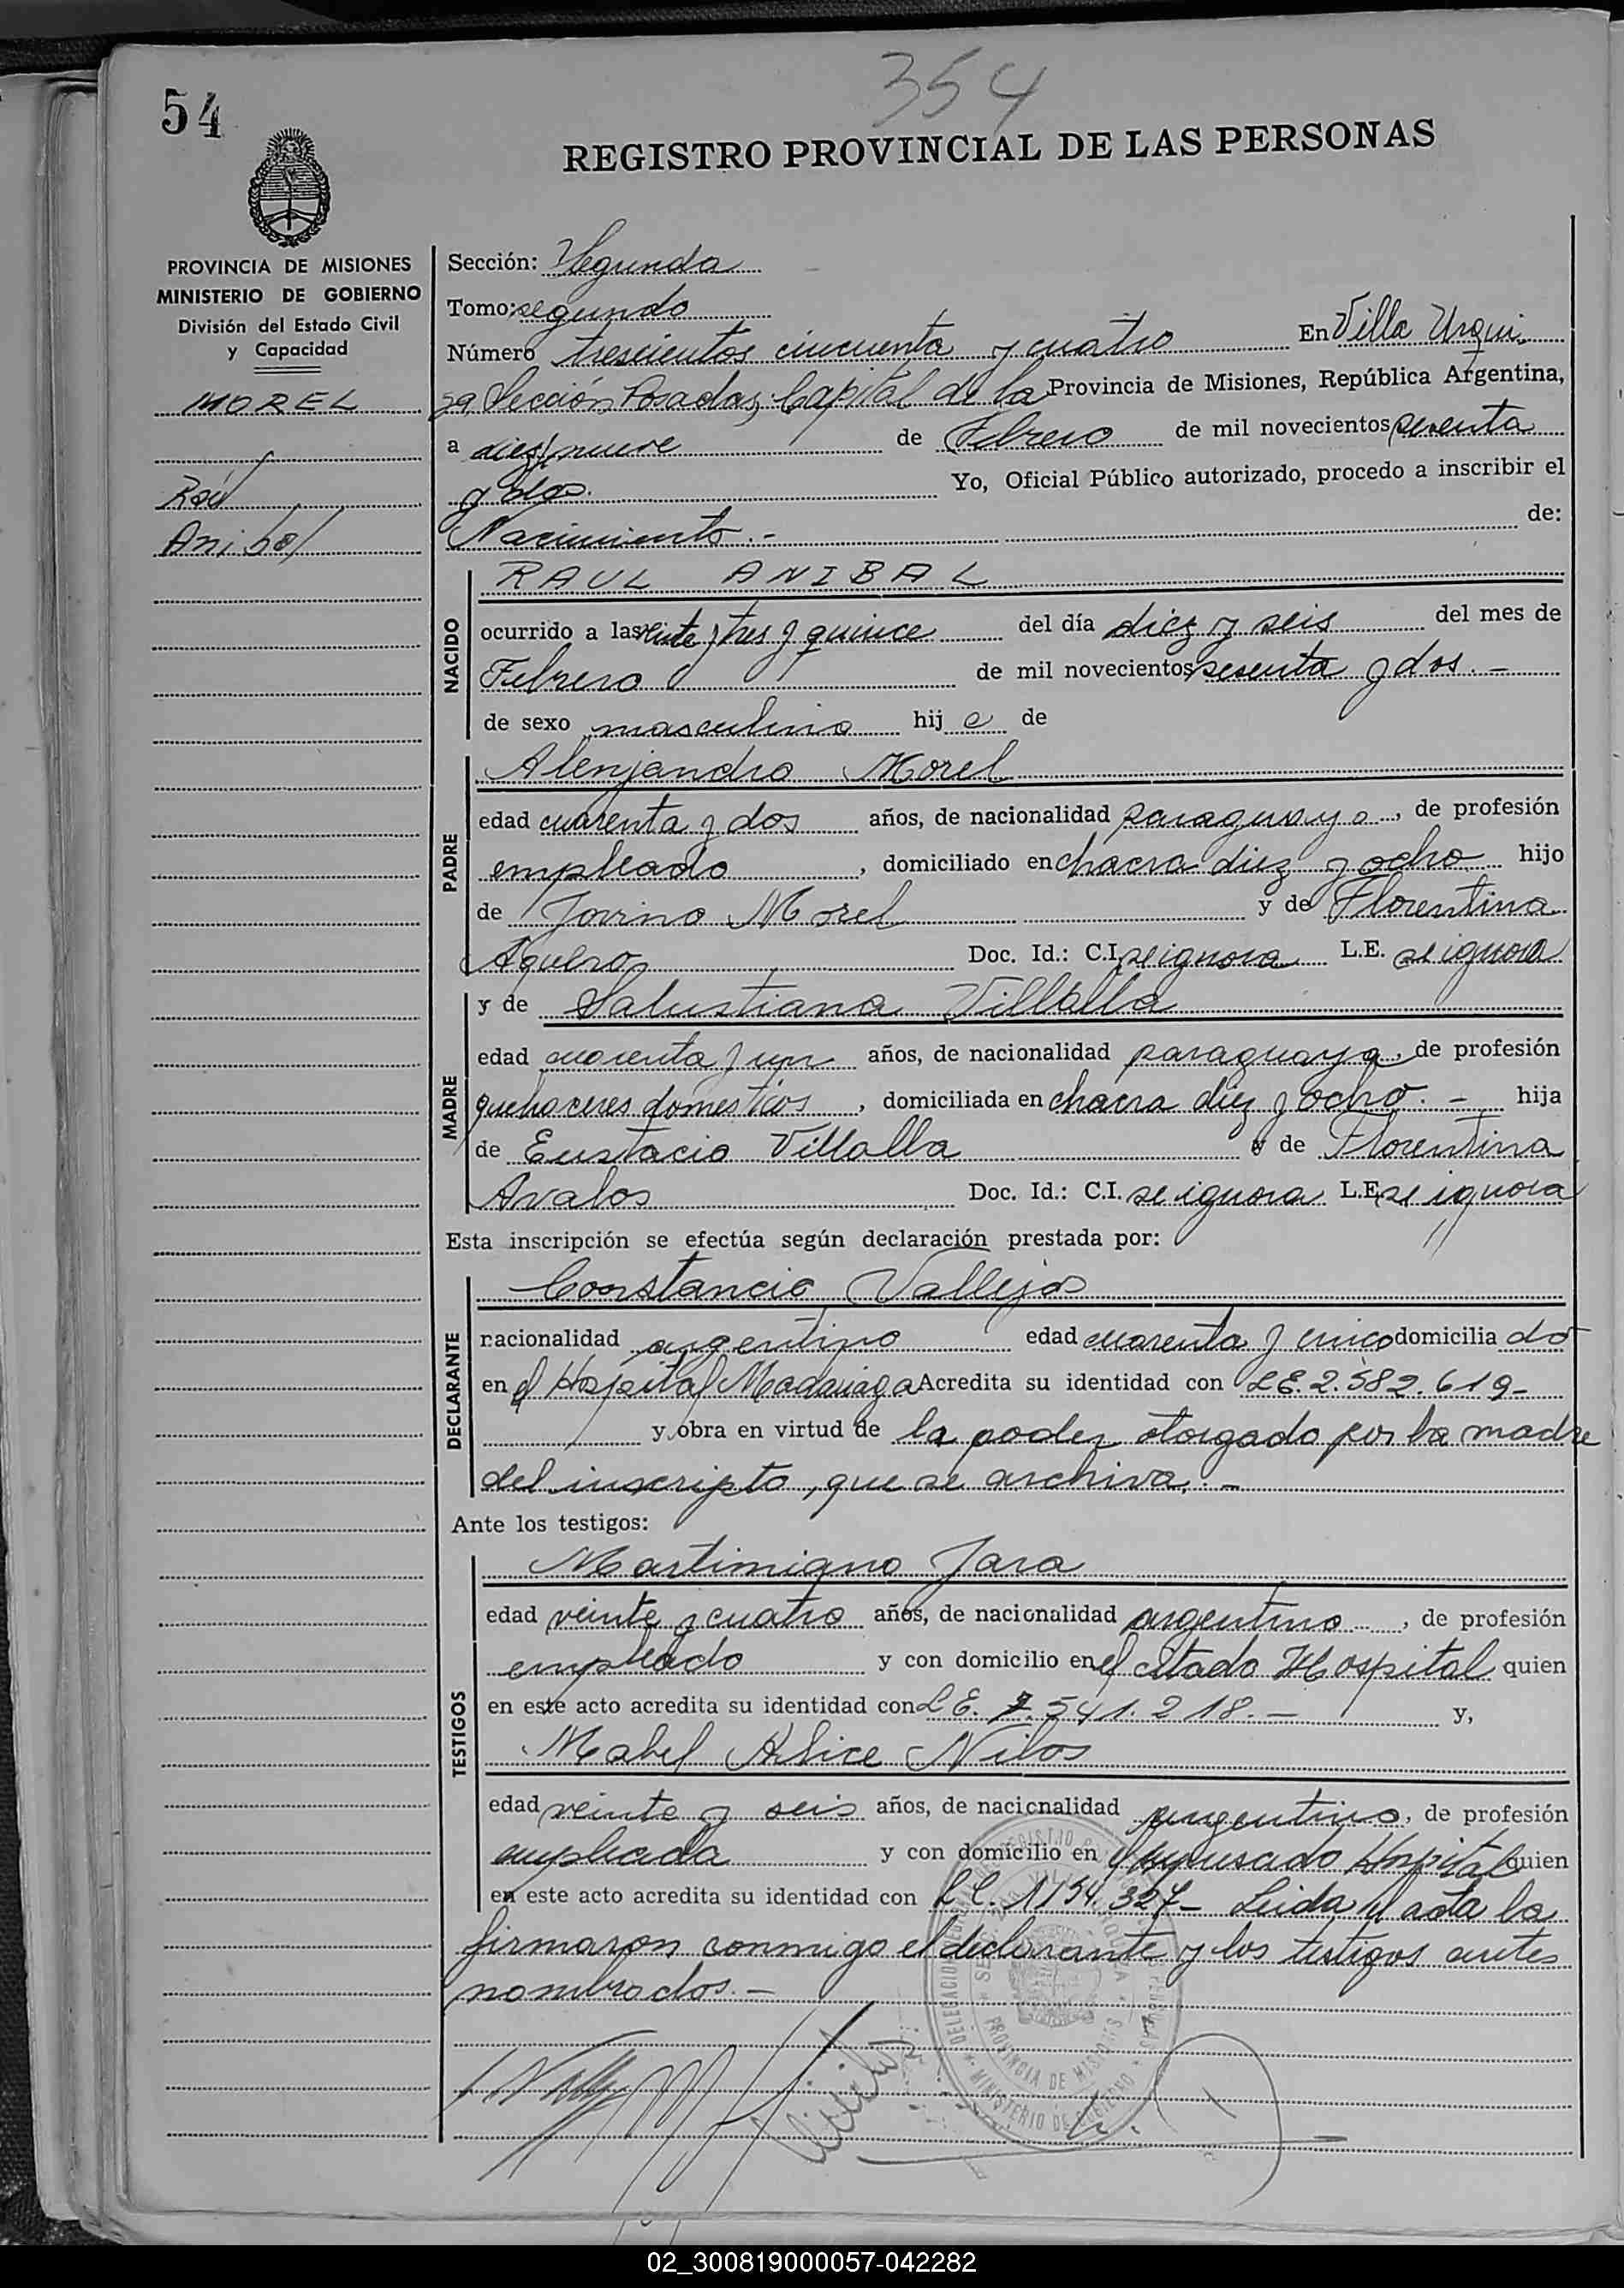 54
354
REGISTRO PROVINCIAL DE LAS PERSONAS
PROVINCIA DE MISIONES
MINISTERIO DE GOBIERNO
División del Estado Civil
y Capacidad
MOREL
Raúl
Anibal
Sección: Segunda
Tomo: segundo
Número trescientos cincuenta y cuatro En Villa Urqui
za Sección Posadas, Capital de la Provincia de Misiones, República Argentina,
a diez y nueve de Febrero de mil novecientos sesenta
y dos. Yo, Oficial Público autorizado, procedo a inscribir el
Nacimiento.- de:
NACIDO
RAUL ANIBAL
ocurrido a las veinte y tres y quince del día diez y seis del mes de
Febrero de mil novecientos sesenta y dos.-
de sexo masculino hij o de
PADRE
Alenjandro Morel
edad cuarenta y dos años, de nacionalidad paraguayo, de profesión
empleado, domiciliado en chacra diez y ocho hijo
de Jovino Morel y de Florentina
Aquero Doc. Id.: C.I. se ignora L.E. se ignora
MADRE
y de Salustiana Villalba
edad cuarenta y un años, de nacionalidad paraguaya, de profesión
quehaceres domesticos, domiciliada en chacra diez y ocho.- hija
de Eustacio Villalba y de Florentina
Avalos Doc. Id.: C.I. se ignora L.E. se ignora
Esta inscripción se efectúa según declaración prestada por:
DECLARANTE
Constancio Vallejos
nacionalidad argentino edad cuarenta y cinco domicilia do
en el Hospital Madariaga Acredita su identidad con LE. 2.582.619-
y obra en virtud de la poder otorgado por la madre
del inscripto, que se archiva.-
Ante los testigos:
TESTIGOS
Martimiano Jara
edad veinte y cuatro años, de nacionalidad argentino, de profesión
empleado y con domicilio en el citado Hospital quien
en este acto acredita su identidad con L E. 7.541.218.- y,
Mabel Alice Nilos
edad veinte y seis años, de nacionalidad argentino, de profesión
empleada y con domicilio en el expresado Hospital quien
en este acto acredita su identidad con L C. 1154.327- Leida el acta la
firmaron conmigo el declarante y los testigos antes
nombrados.-
PROVINCIA DE MISIONES
MINISTERIO DE GOBIERNO
02_300819000057-042282